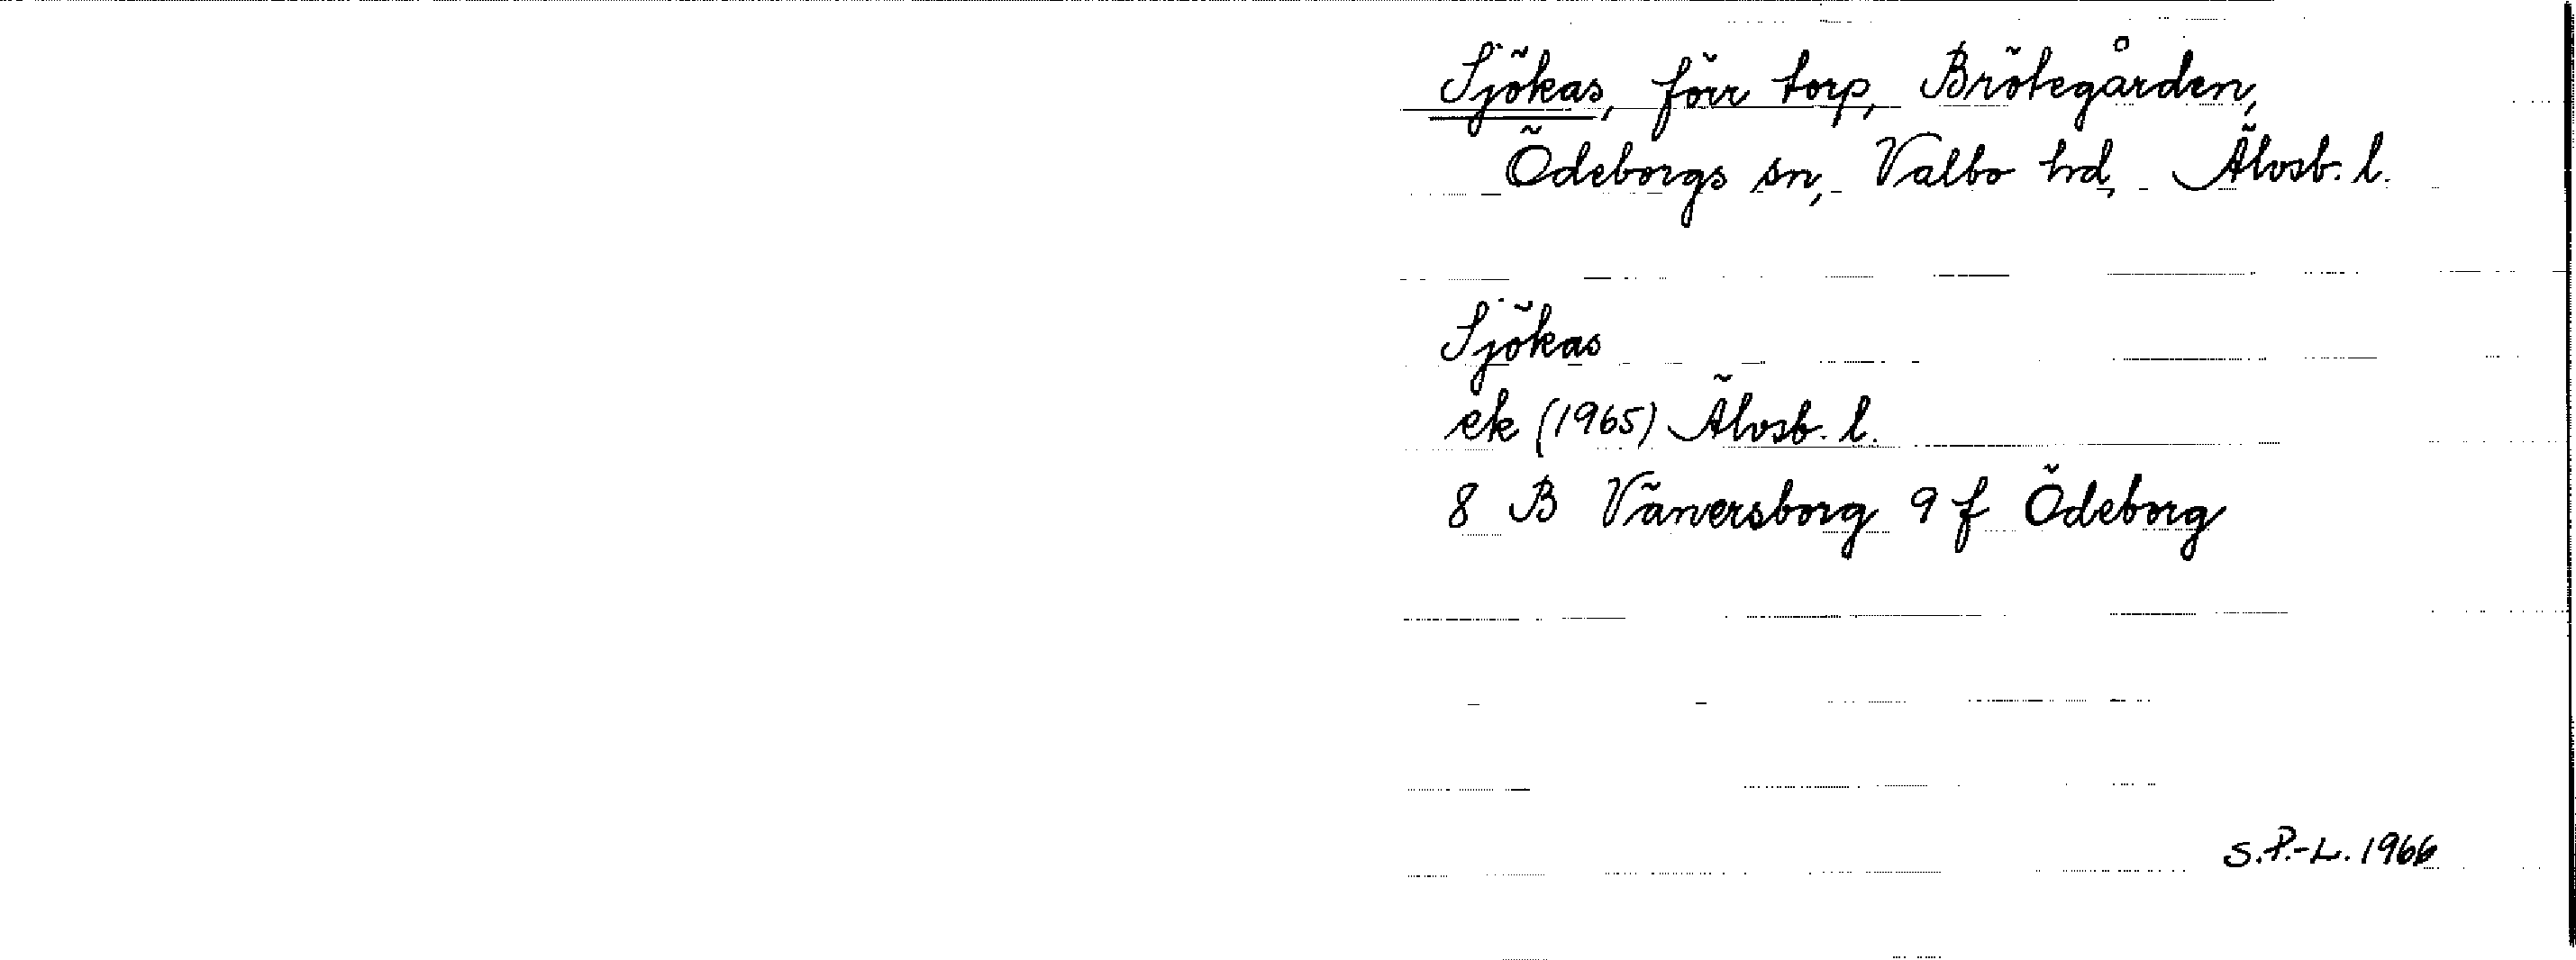 Sjökas, förr torp, Brötegården,
Ödeborgs sn, Valbo hd, Älvsb. l.
Sjökas
ek (1965) Älvsb. l.
8 B Vänersborg 9 f Ödeborg
S.P.-L. 1966